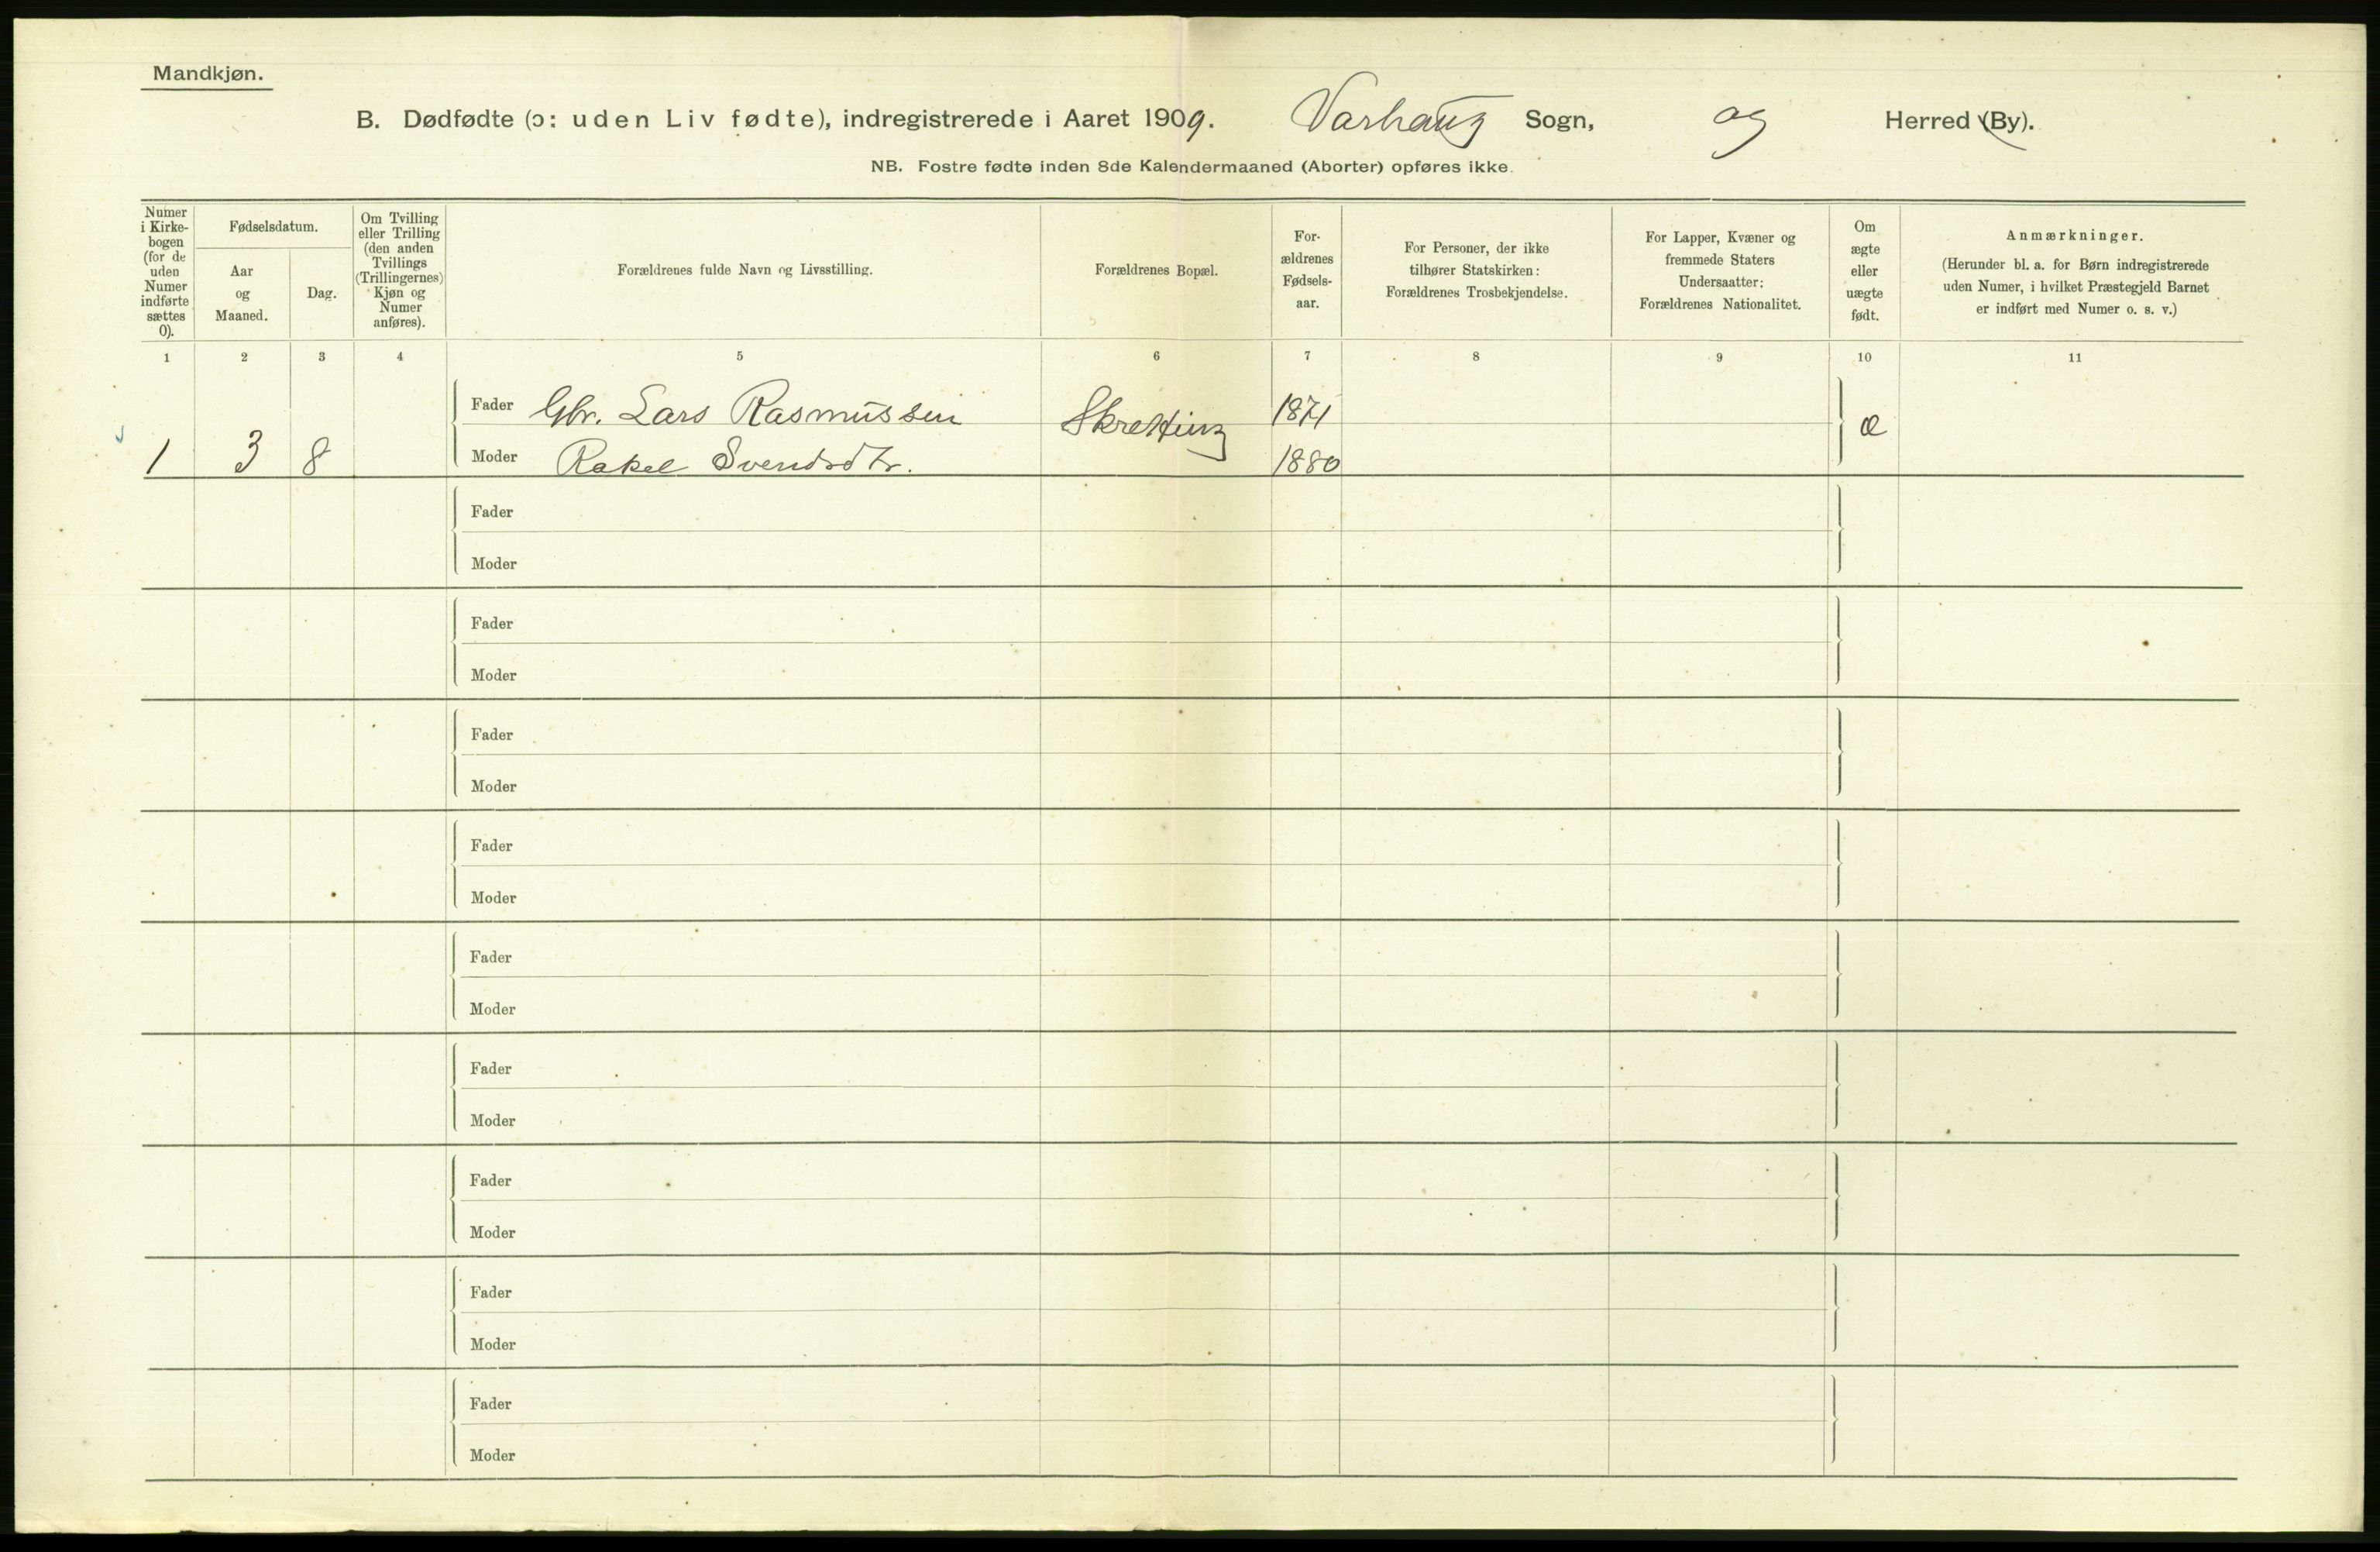 Mandkjøn.
B. Dødfødte (ɔ: uden Liv fødte), indregistrerede i Aaret 1909. Varhaug Sogn, og Herred (By).
NB. Fostre fødte inden 8de Kalendermaaned (Aborter) opføres ikke.
Numer
i Kirke-
bogen
(for de
uden
Numer
indførte
sættes
0).
Fødselsdatum.
Aar
og
Maaned.
Dag.
Om Tvilling
eller Trilling
(den anden
Tvillings
(Trillingernes)
Kjøn og
Numer
anføres).
Forældrenes fulde Navn og Livsstilling.
Forældrenes Bopæl.
For-
ældrenes
Fødsels-
aar.
For Personer, der ikke
tilhører Statskirken:
Forældrenes Trosbekjendelse.
For Lapper, Kvæner og
fremmede Staters
Undersaatter:
Forældrenes Nationalitet.
Om
ægte
eller
uægte
født.
Anmærkninger.
(Herunder bl. a. for Børn indregistrerede
uden Numer, i hvilket Præstegjeld Barnet
er indført med Numer o. s. v.)
1 2 3 4 5 6 7 8 9 10 11
Fader Gbr. Lars Rasmussen Skretting 1871 æ
1 3 8 Moder Rakel Svendsdtr. 1880
Fader
Moder
Fader
Moder
Fader
Moder
Fader
Moder
Fader
Moder
Fader
Moder
Fader
Moder
Fader
Moder
Fader
Moder